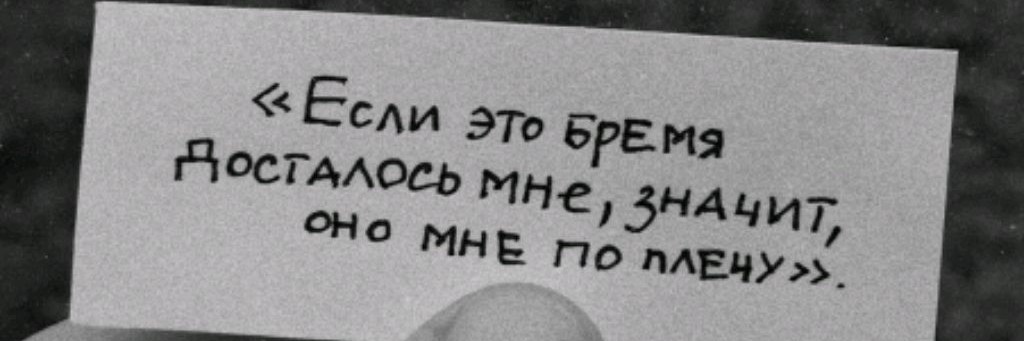 «Если это бремя
досталось мне, значит,
оно мне по плечу».